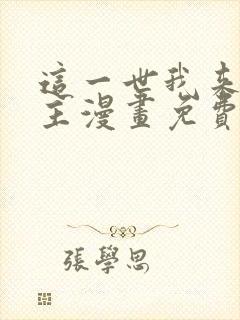 這一世我來
主漫畫免費
張學思